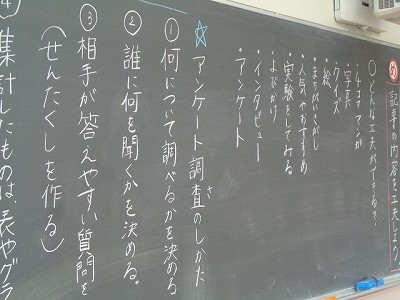 め
記事の内容を工夫しよう
○どんな工夫ができる？
・4コママンガ
・写真
・クイズ
・絵
・まちがいさがし
・人気やおすすめ
・実験をしてみる
・よびかけ
・インタビュー
・アンケート
☆アンケート調査のしかた
さ
①何について調べるかを決める
②誰に何を聞くかを決める。
③相手が答えやすい質問を
(せんたくしを作る)
④集計したものは、表やグラ